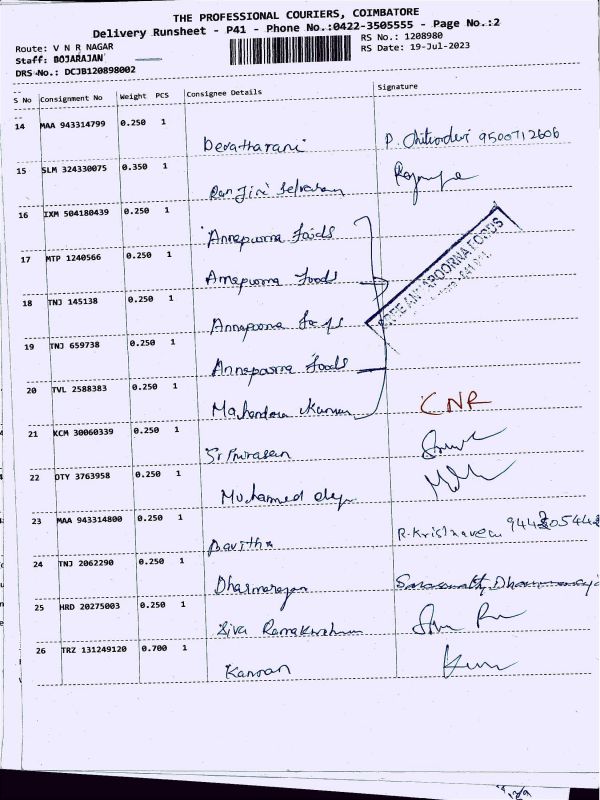 THE PROFESSIONAL COURIERS, COIMBATORE
Delivery Runsheet - P41 - Phone No.:0422-3505555 - Page No.:2
Route: V N R NAGAR
RS No.: 1208980
Staff: BOJARAJAN
RS Date: 19-Jul-2023
DRS No.: DCJB120898002
S No Consignment No Weight PCS Consignee Details Signature
14 MAA 943314799 0.250 1
Devatharani P. Chitradevi 9500712606
15 SLM 324330075 0.350 1
Ranjini Selvaraw
16 IXM 504180439 0.250 1
Annapoorna Foods
17 MTP 1240566 0.250 1
Annapoorna Foods
SREE ANNAPOORNA FOODS
18 TNJ 145138 0.250 1
Annapoorna
19 TNJ 659738 0.250 1
Annapoorna Foods
20 TVL 2588383 0.250 1
Mahendra Kumar CNR
21 KCM 30060339 0.250 1
22 OTY 3763958 0.250 1
Muhamed
23 MAA 943314800 0.250 1
Pavithra R. Krishnaveni
24 TNJ 2062290 0.250 1
Dharmarajan
25 HRD 20275003 0.250 1
Siva Ramakrishnan
26 TRZ 131249120 0.700 1
Kannan